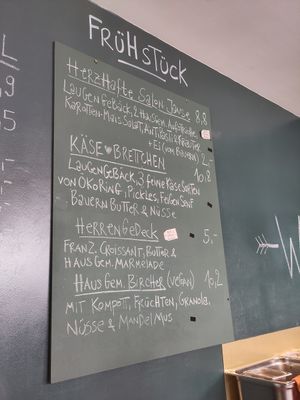 FRÜHSTÜCK
HERZHAFTE SALON JAUSE 8,8
LAUGENGEBÄCK, 2 HAUSGEM. AUFSTRICHE,
KAROTTEN-MINZ SALAT, ANTIPASTI & KRÄUTER
+ EI (VOM BAUERN) 2,-
KÄSE♥BRETTCHEN 10,8
LAUGENGEBÄCK, 3 FEINE KÄSESORTEN
VON ÖKORING, PICKLES, FEIGENSENF
BAUERN BUTTER & NÜSSE
HERRENGEDECK 5,-
FRANZ. CROISSANT, BUTTER &
HAUSGEM. MARMELADE
HAUSGEM. BIRCHER (VEGAN) 10,2
MIT KOMPOTT, FRÜCHTEN, GRANOLA,
NÜSSE & MANDELMUS
L
,9
,5
,-
W